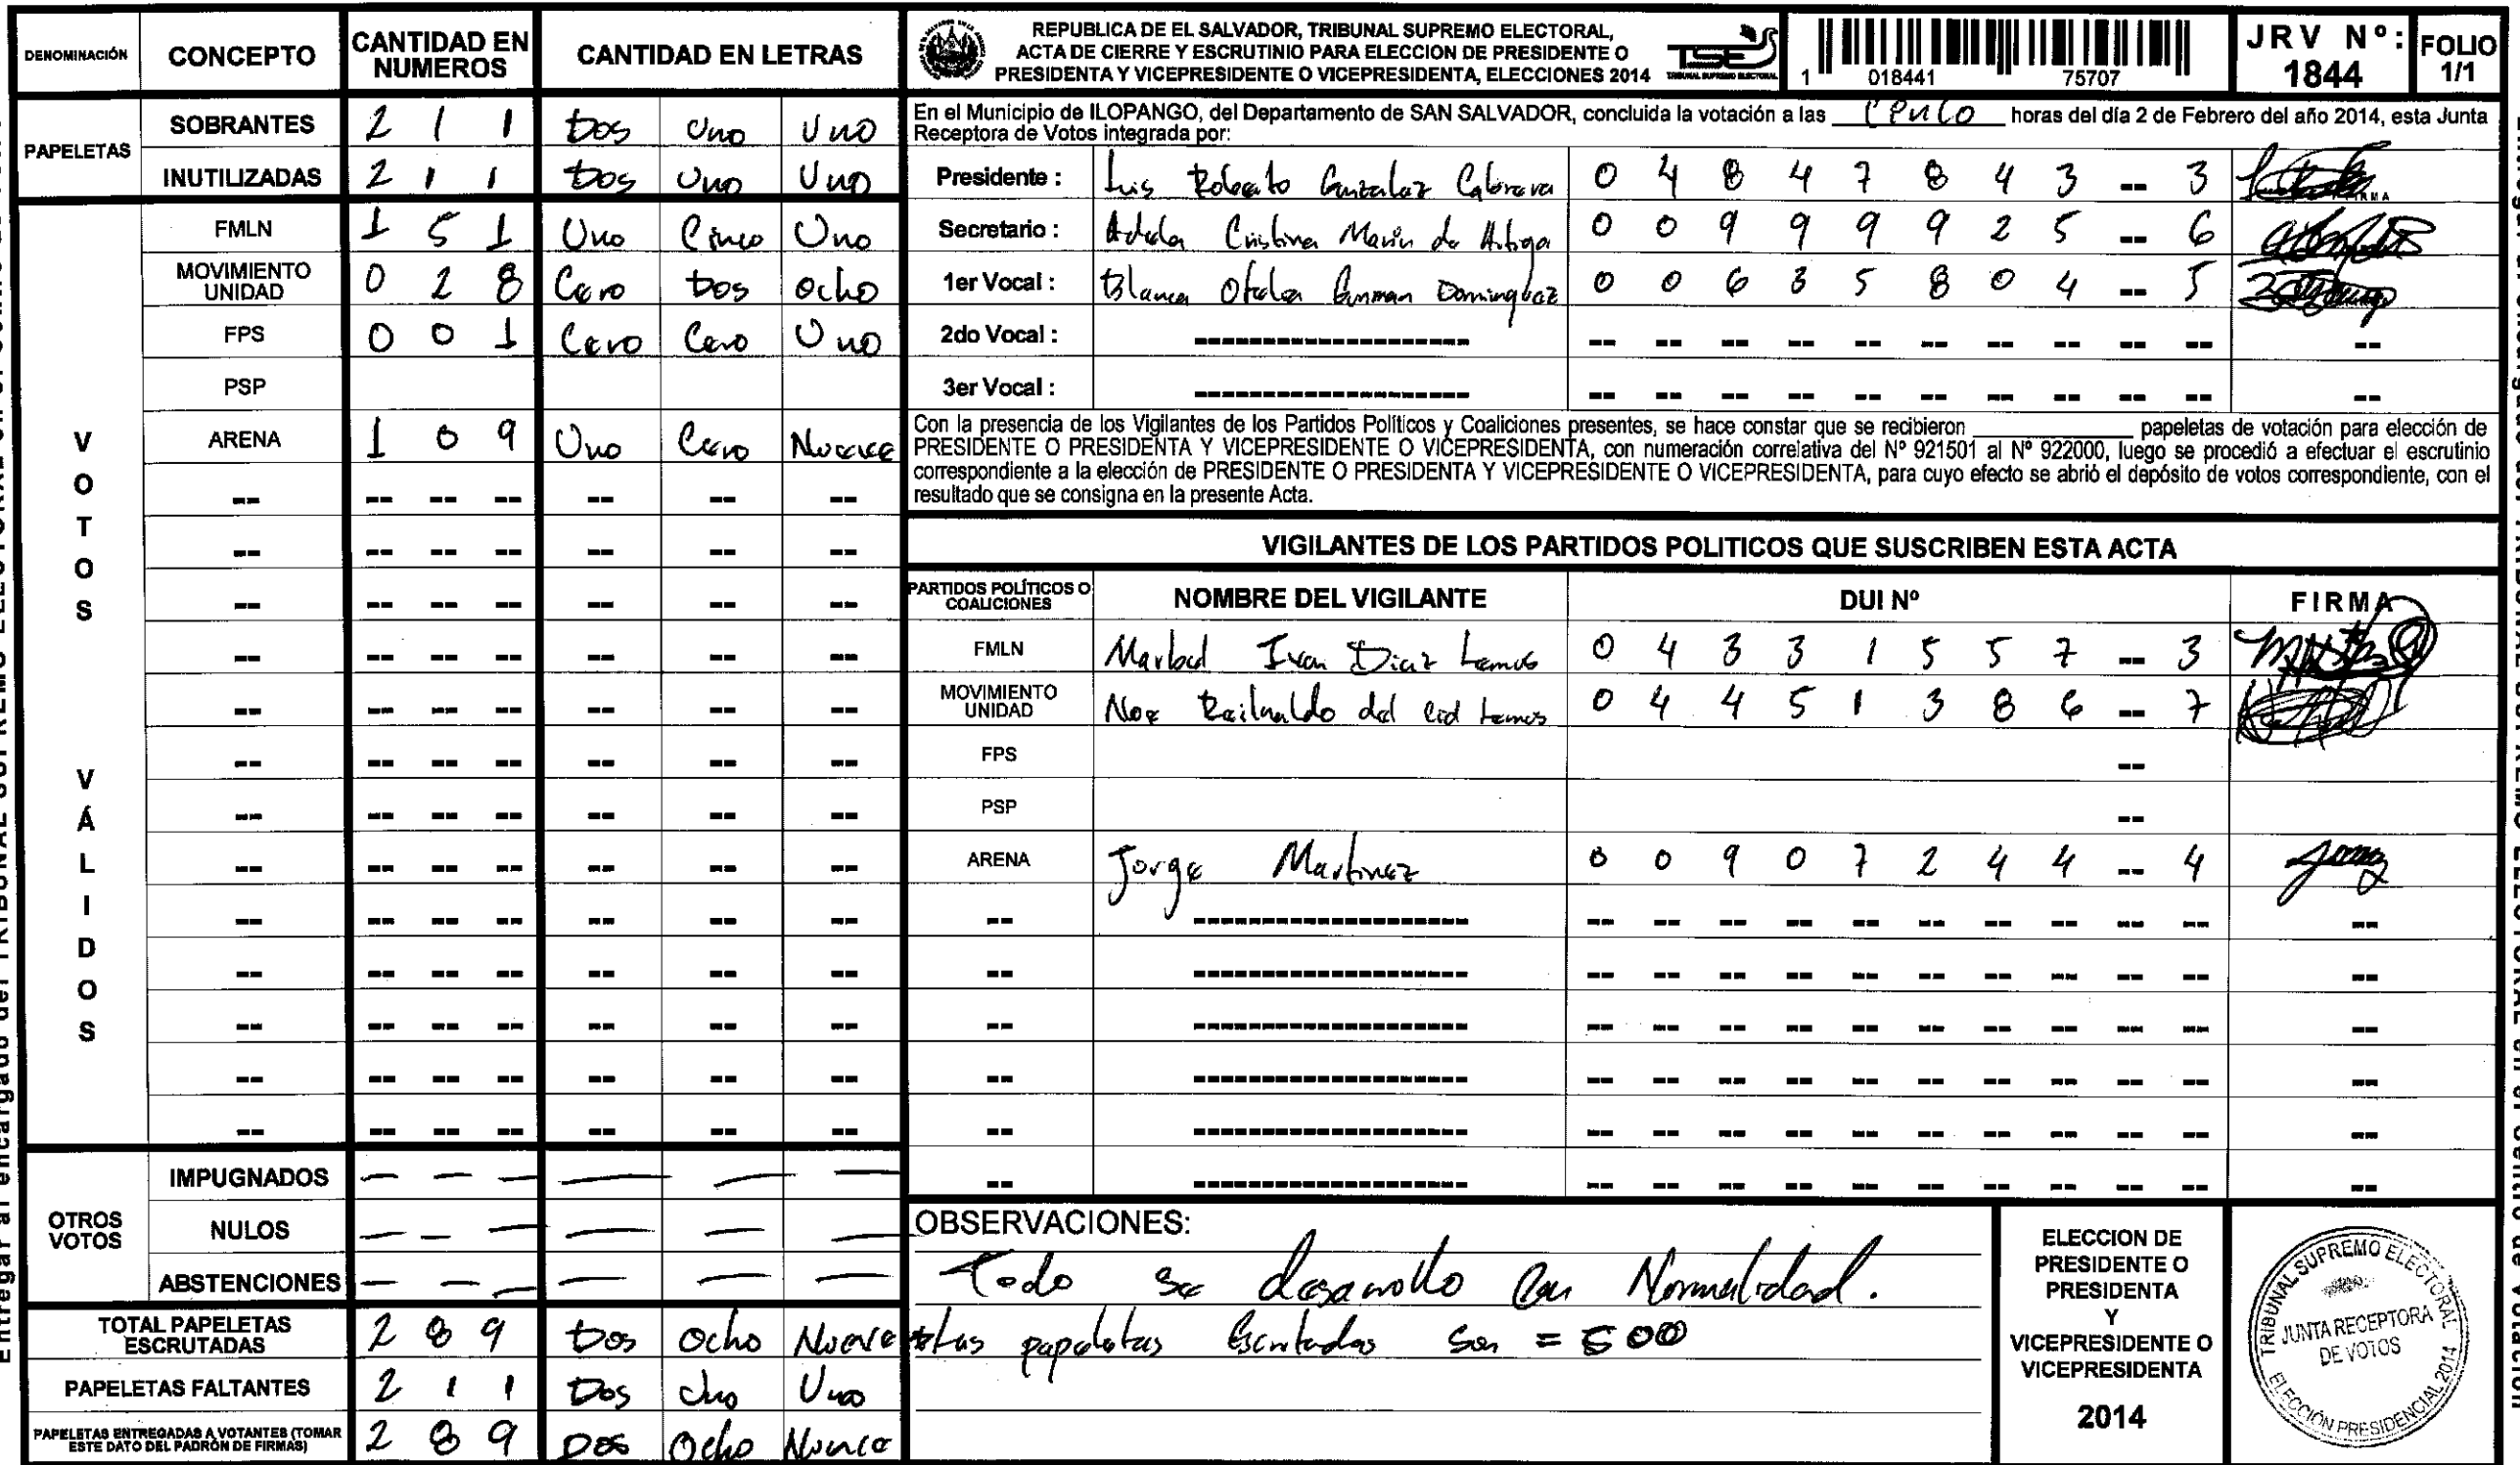 DENOMINACIÓN CONCEPTO CANTIDAD EN NUMEROS CANTIDAD EN LETRAS
PAPELETAS
SOBRANTES 2 1 1 Dos Uno Uno
INUTILIZADAS 2 1 1 Dos Uno Uno
VOTOS VÁLIDOS
FMLN 1 5 1 Uno Cinco Uno
MOVIMIENTO UNIDAD 0 2 8 Cero Dos Ocho
FPS 0 0 1 Cero Cero Uno
PSP
ARENA 1 0 9 Uno Cero Nueve
OTROS VOTOS
IMPUGNADOS — — — — — —
NULOS — — — — — —
ABSTENCIONES — — — — — —
TOTAL PAPELETAS ESCRUTADAS 2 8 9 Dos Ocho Nueve
PAPELETAS FALTANTES 2 1 1 Dos Uno Uno
PAPELETAS ENTREGADAS A VOTANTES (TOMAR ESTE DATO DEL PADRÓN DE FIRMAS) 2 8 9 Dos Ocho Nueve
REPUBLICA DE EL SALVADOR, TRIBUNAL SUPREMO ELECTORAL,
ACTA DE CIERRE Y ESCRUTINIO PARA ELECCION DE PRESIDENTE O
PRESIDENTA Y VICEPRESIDENTE O VICEPRESIDENTA, ELECCIONES 2014
TSE
TRIBUNAL SUPREMO ELECTORAL
1 018441 75707
JRV Nº: 1844
FOLIO 1/1
En el Municipio de ILOPANGO, del Departamento de SAN SALVADOR, concluida la votación a las horas del día 2 de Febrero del año 2014, esta Junta
Receptora de Votos integrada por:
Presidente : Luis Roberto Gonzalez Cabrera 0 4 8 4 7 8 4 3 -- 3 FIRMA
Secretario : Adela Cristina Marin de Artiga 0 0 9 9 9 9 2 5 -- 6
1er Vocal : Blanca Ofelia Guzman Dominguez 0 0 6 3 5 8 0 4 -- 5
2do Vocal : -- -- -- -- -- -- -- -- -- -- --
3er Vocal : -- -- -- -- -- -- -- -- -- -- --
Con la presencia de los Vigilantes de los Partidos Políticos y Coaliciones presentes, se hace constar que se recibieron ______ papeletas de votación para elección de
PRESIDENTE O PRESIDENTA Y VICEPRESIDENTE O VICEPRESIDENTA, con numeración correlativa del Nº 921501 al Nº 922000, luego se procedió a efectuar el escrutinio
correspondiente a la elección de PRESIDENTE O PRESIDENTA Y VICEPRESIDENTE O VICEPRESIDENTA, para cuyo efecto se abrió el depósito de votos correspondiente, con el
resultado que se consigna en la presente Acta.
VIGILANTES DE LOS PARTIDOS POLITICOS QUE SUSCRIBEN ESTA ACTA
PARTIDOS POLÍTICOS O COALICIONES NOMBRE DEL VIGILANTE DUI Nº FIRMA
FMLN Ivan Diaz Lemus 0 4 3 3 1 5 5 7 -- 3
MOVIMIENTO UNIDAD Noe del Cid Lemus 0 4 4 5 1 3 8 6 -- 7
FPS --
PSP --
ARENA Jorge Martinez 0 0 9 0 7 2 4 4 -- 4
OBSERVACIONES:
Todo se desarrollo con Normalidad.
papeletas son = 500
ELECCION DE
PRESIDENTE O
PRESIDENTA
Y
VICEPRESIDENTE O
VICEPRESIDENTA
2014
TRIBUNAL SUPREMO ELECTORAL
JUNTA RECEPTORA
DE VOTOS
ELECCIÓN PRESIDENCIAL 2014